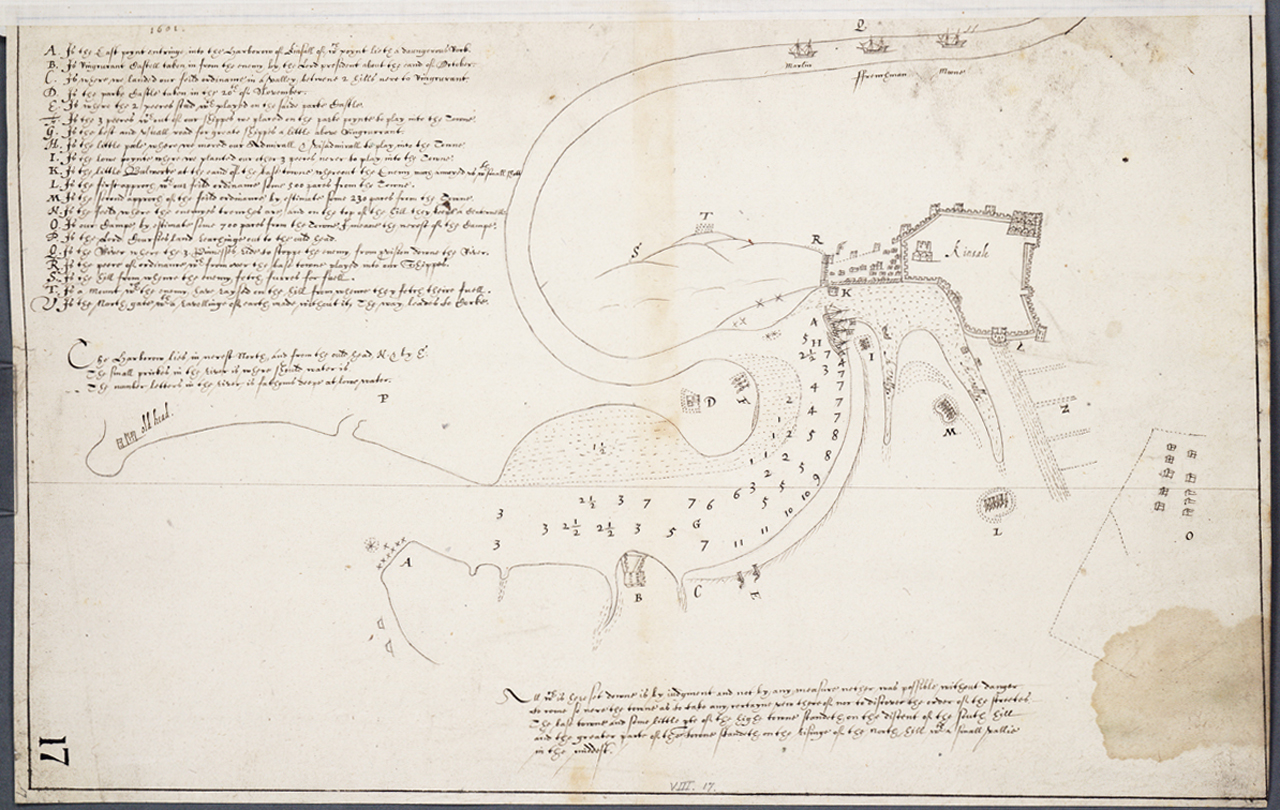 1601.
A. Is the East poynt entringe into the Harborow of Kinsall of wch poynt lieth a daungerous Rock.
B. Is Ringcurant Castell taken in from the enemy by the Lord president about the eand of October.
C. Is where we landed our feild ordinaunce in a valley, betwene 2 hills nere to Ringcurant.
D. Is the parke Castle taken in the 20th of November.
E. Is where the 2 peeces stood wch played on the saide parke Castle.
F. Is the 3 peeces wch out of our shippes we placed on the parke poynte to play into the Towne.
G. Is the best and usuall road for greate shippes a little above Ringcurrant.
H. Is the little pole where we mored our Admirall & Vizadmirall to play into the Towne.
I. Is the lowe poynte where we planted our other 3 peeces nerer to play into the Towne.
K. Is the little Bulworke at the eand of the base towne whereout the Enemy may annoyed us wth small shott
L. Is the first approch wth our feild ordinaunce some 500 paces from the Towne.
M. Is the second approch of the feild ordinaunce by estimate some 230 paces from the Towne.
N. Is the feild where the enemyes trenches are, and on the top of the hill they keepe a Centronell
O. Is our Campe, by estimate some 700 paces from the Towne I meane the nerest of the Campe.
P. Is the Lord Coursies land reachinge out to the ould head.
Q. Is the River where the 3 ride to stoppe the enemy from down the River.
R. Is the peece of ordinaunce wch from over the base towne played into our Shippes.
S. Is the hill from whence the enemy fetch furres for fuell.
T. Is a Mount wch the enemy have raysed on the hill from whence they fetch theire fuell.
V. Is the North gate, wth a ravellinge of earth made without it, The way leades to Corke.
The Harborow lies in nerest North, and from the ould head, N. & by E.
The small prickes in the River is where should water is
The number letters in the River is fathoms deepe at lowe water.
Q
Merlin
ffrenchman
Moone
T
S
R
Kinsale
K
A
H
I
V
5
2½
7
3
4
7
7
4
7
7
4
8
5
8
D
F
2
1
2
1
1
2
5
M
Z
P
old head.
1½
9
10
10
6
3
5
5
L
O
3
2½
3
7
7
6
3
2½
2½
3
5
G
3
7
11
11
A
B
C
E
All wch is here set downe is by judgment and not by any measure nether was possible without danger
to come so nere the towne as to take any certayne vew thereof nor to discover the order of the streetes
The base towne and some little pte of the highe towne standeth on the discent of the South hill
and the greater parte of the towne standeth on the risinge of the North hill wth a small vallie
in the middest.
17
VIII. 17.